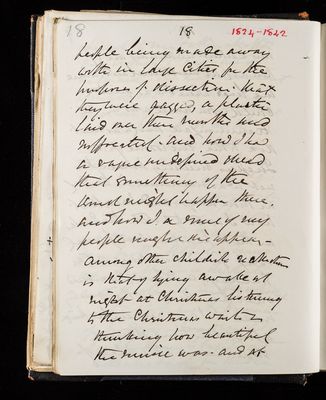 18 18 1824-1842
people being made away
with in large Cities for the
purposes of dissection - that
they were gagged, a plaster
laid over their mouths and
suffocated - and how I had
a vague undefined dread
that something of the
kind might happen there,
and how I or some of my
people might disappear -
Among other childish recollections
is that of lying awake at
night at Christmas listening
to the Christmas waits &
thinking how beautiful
the music was - and at